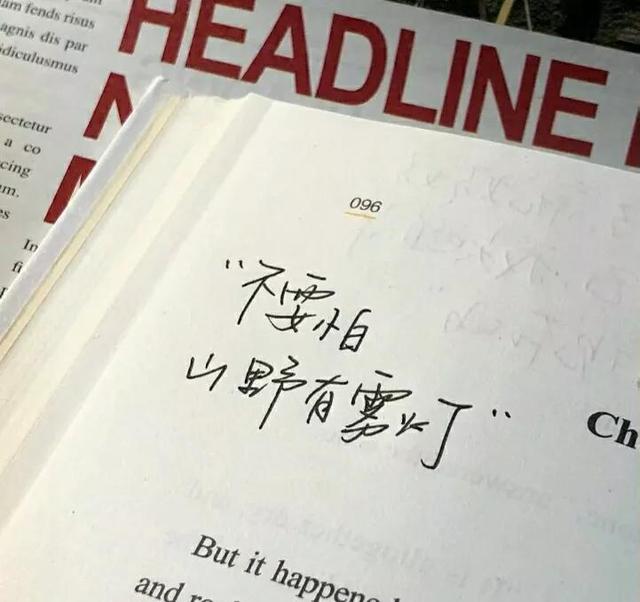 am fends risus
agnis dis par
idiculusmus
sectetur
a co
cing
um.
es
In
HEADLINE
N
096
“不要怕
山野有雾灯”
Ch
But it happened
and re